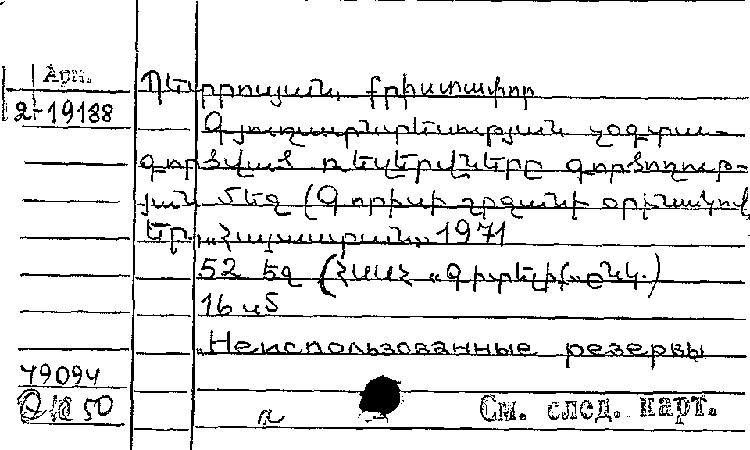 Арм.
2-19188
Պետրոսյան, Քրիստափոր
Գյուղատնտեսության չօգտա-
գործված ռեզերվները գործողութ-
յան մեջ (Գորիսի շրջանի օրինակով,
Եր., „Հայաստան„ 1971
52 եջ (ՀՍՍՀ „Գիտելիք„ ընկ.)
16 սմ
„Неиспользованные резервы
79094
50
См. след. карт.